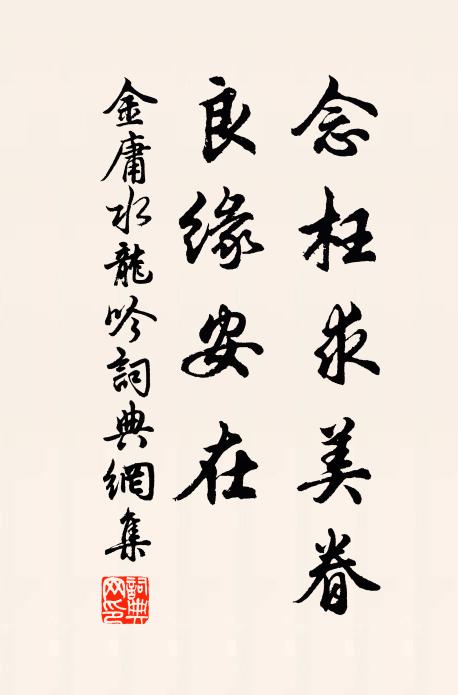 念枉求美眷
良緣安在
金庸水龍吟詞典網集
詞典網印